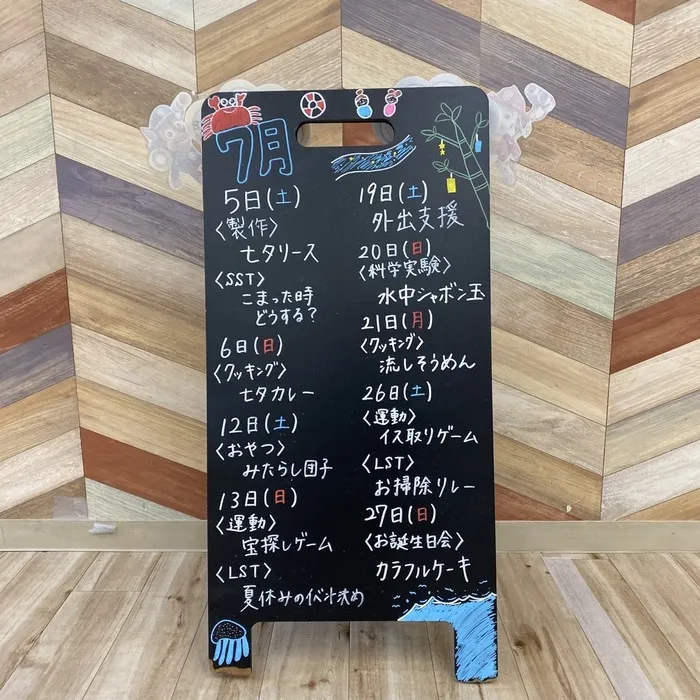 7月
5日(土)
〈製作〉
七夕リース
〈SST〉
こまった時
どうする?
6日(日)
〈クッキング〉
七夕カレー
12日(土)
〈おやつ〉
みたらし団子
13日(日)
〈運動〉
宝探しゲーム
〈LST〉
夏休みのイベント決め
19日(土)
外出支援
20日(日)
〈科学実験〉
水中シャボン玉
21日(月)
〈クッキング〉
流しそうめん
26日(土)
〈運動〉
イス取りゲーム
〈LST〉
お掃除リレー
27日(日)
〈お誕生日会〉
カラフルケーキ